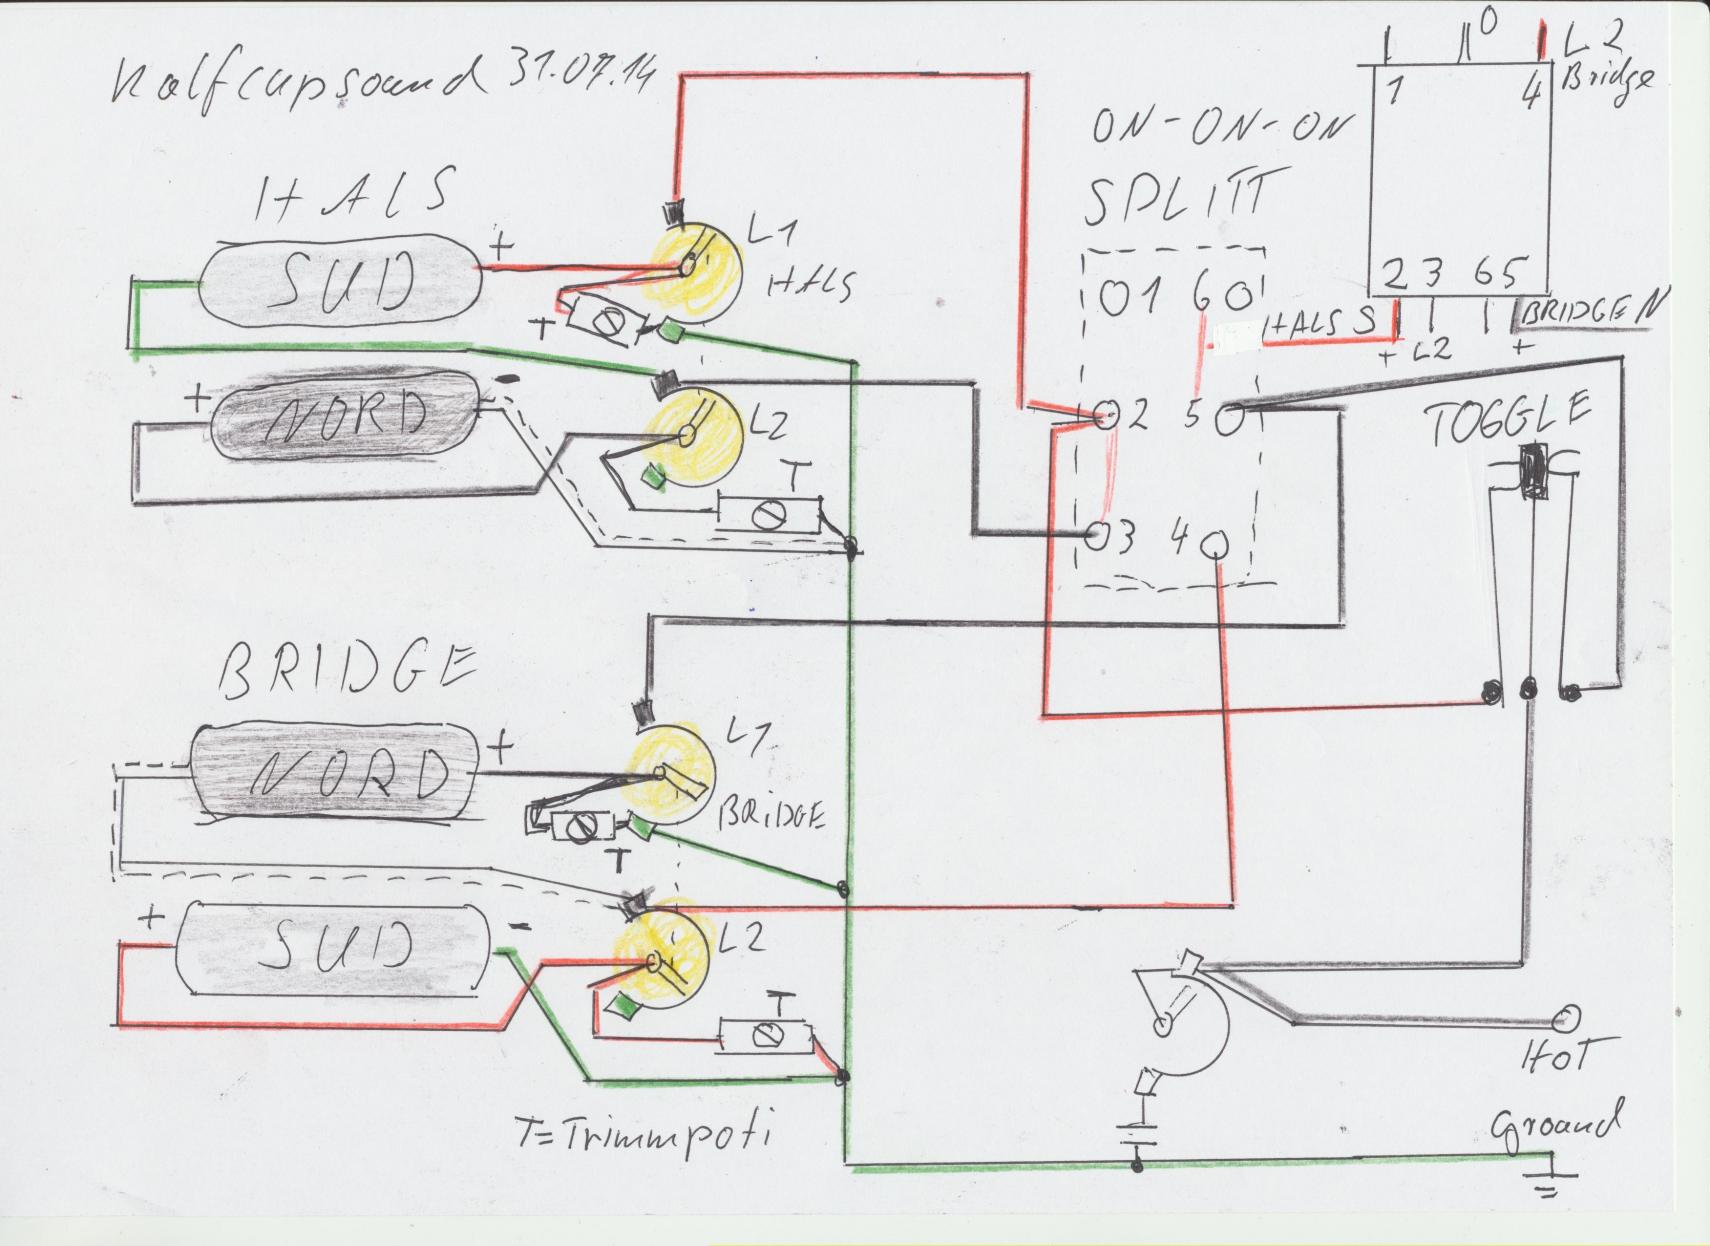 Kalfcupsound 31.07.14
HALS
SUD
+
L1
HALS
T
+
NORD
-
L2
T
ON-ON-ON
SPLITT
1 6
2 5
3 4
0
L2
Bridge
1 4
2 3 6 5
HALS S
BRIDGE N
+ L2 +
TOGGLE
BRIDGE
NORD
+
L1
BRIDGE
T
+
SUD
-
L2
T
T=Trimmpoti
HOT
Ground